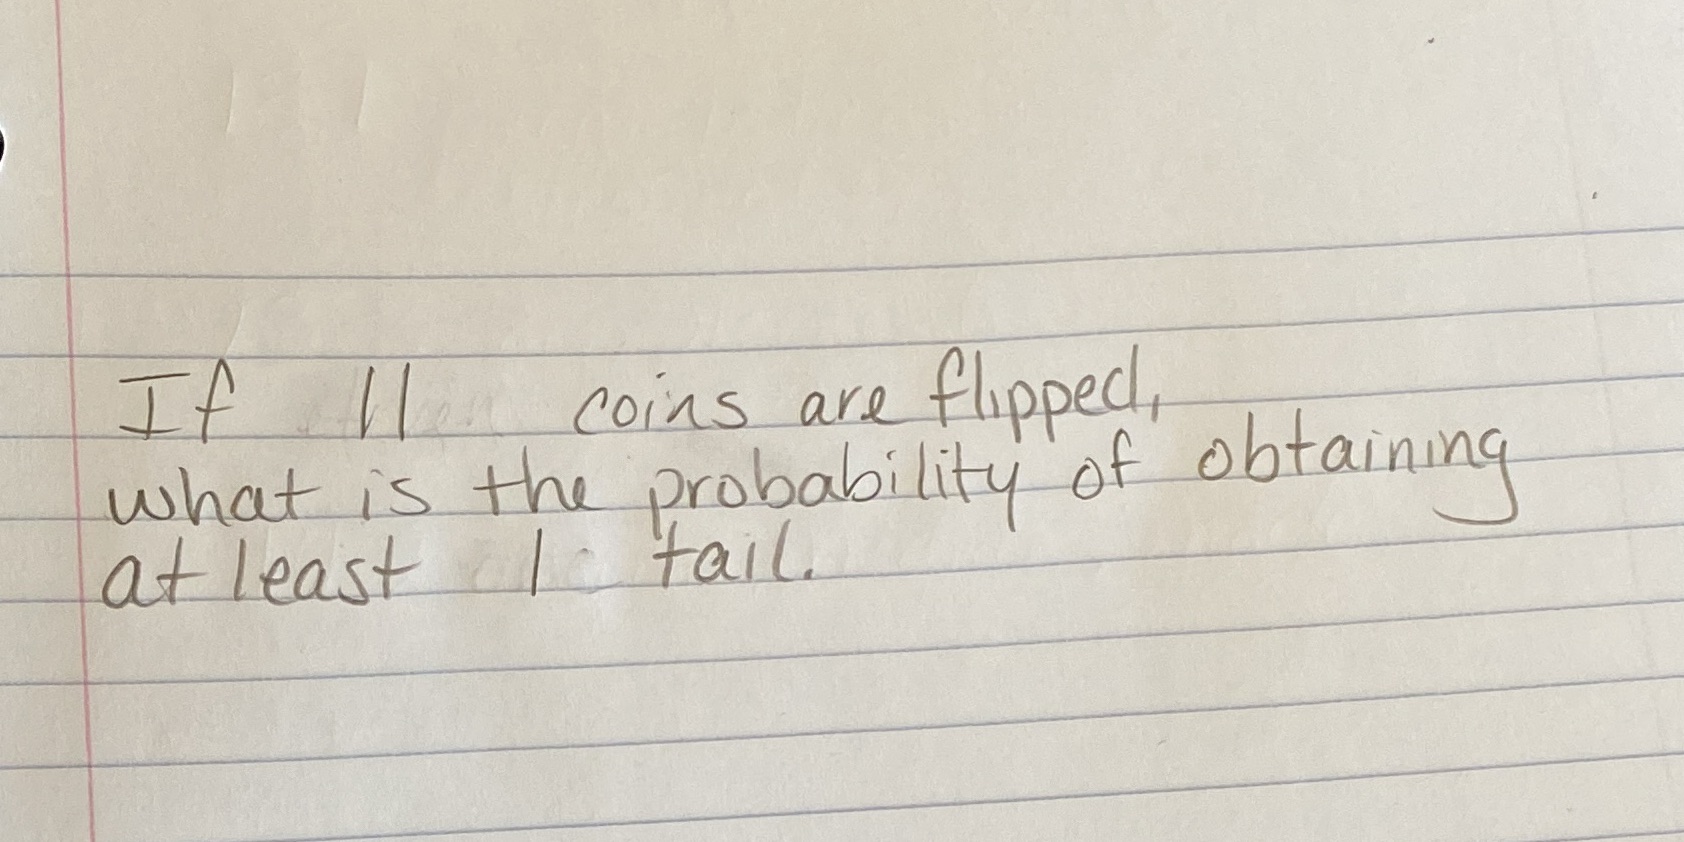 If 11 coins are flipped,
what is the probability of obtaining
at least 1 tail.